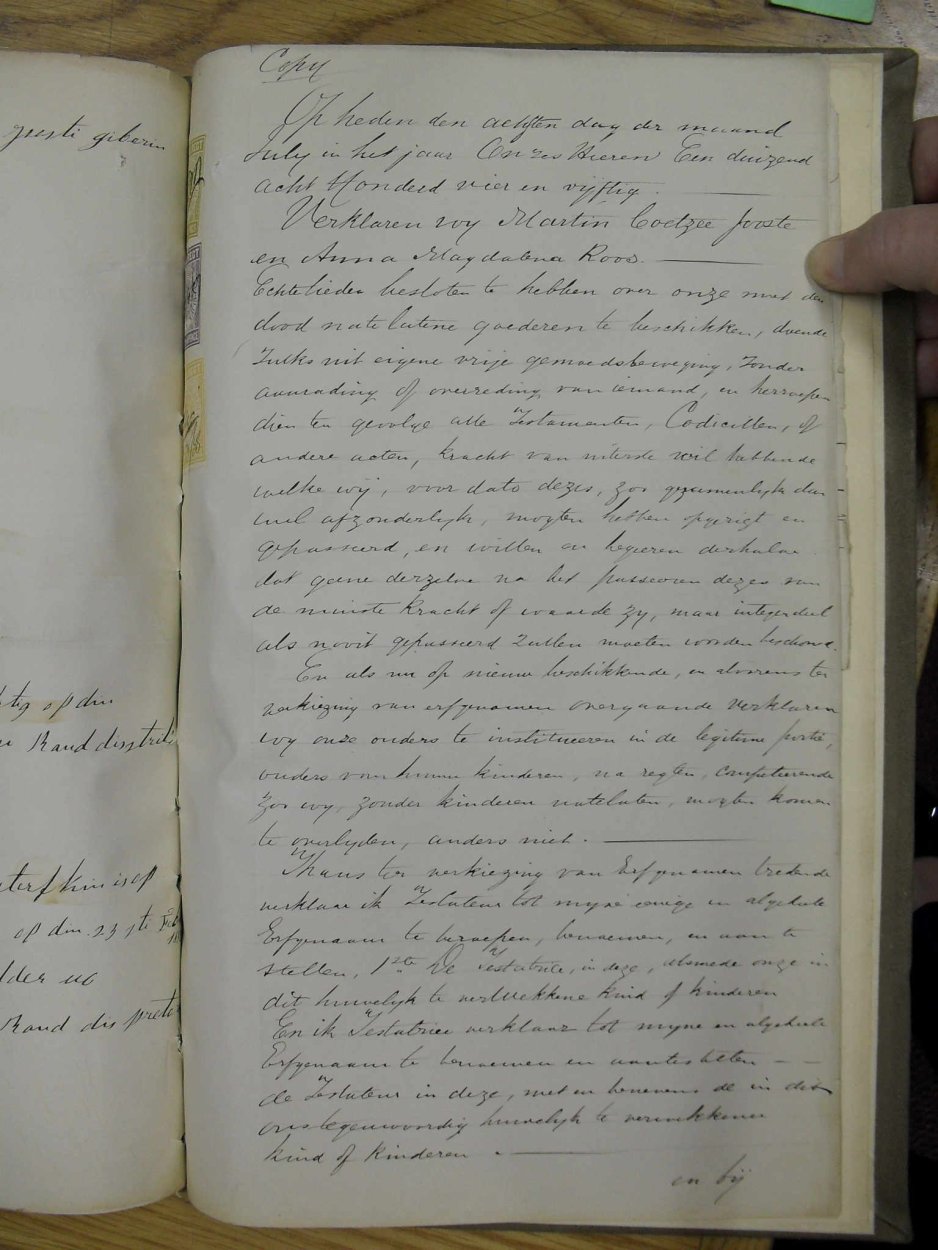 Copy
Op heden den achsten dag der maand
July in het jaar Onzes Heeren Een duizend
acht Honderd vier en vyftig.
Verklaren wy Martin Coetzee Jooste
en Anna Magdalena Roos.
Echtelieden besloten te hebben over onze met den
dood natelatene goederen te beschikken, doende
Zulks uit eigene vrije gemoedsbeweging, Zonder
aanrading of overreding van iemand, en herroepen
dien ten gevolge alle Testamenten, Codicillen, of
andere acten, kracht van uiterste wil hebbende
welke wij, voor dato dezes, zoo gezamenlyk dan
wel afzonderlyk, mogten hebben opgerigt en
gepasseerd, en willen en begeeren derhalve
dat geene derzelve na het passeeren dezes van
de minste kracht of waarde zy, maar integendeel
als nooit gepasseerd zullen moeten worden beschouwd.
En als nu op nieuw beschikkende, en alvorens ter
verkiezing van erfgenamen overgaande verklaren
wy onze ouders te institueeren in de legitime portie,
ouders van hunne kinderen, na regten, competeerende
zoo wy, zonder kinderen natelaten, mogten komen
te overlyden, anders niet.
Thans ter verkiezing van Erfgenamen tredende
verklaar ik Testateur tot myne eenige en algeheele
Erfgenaam te beroepen, benoemen, en aan te
stellen, 1ste De Testatrice, in deze, alsmede onze in
dit huwelyk te verwekkene kind of kinderen
En ik Testatrice verklaar tot myne en algeheele
Erfgenaam te benoemen en aantestellen - -
de Testateur in deze, met en benevens de in dit
ons tegenwoordig huwelyk te verwekkene
kind of kinderen.
en bij
geberin
op den
Rand
is op
op den 23ste Feb
Rand dis